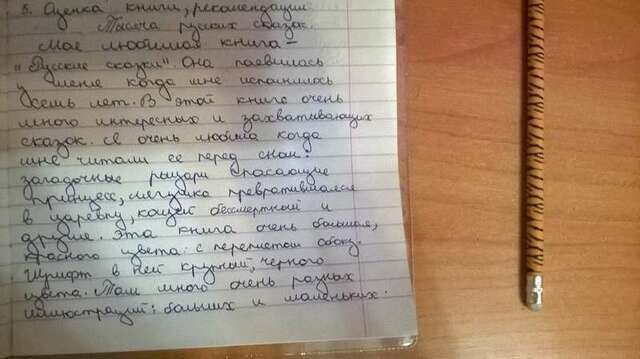 8. Оценка книги, рекомендации
Тысяча русских сказок.
Мое любимая книга –
"Русские сказки". Она появилось
у меня когда мне исполнилось
семь лет. В этой книге очень
много интересных и захватывающих
сказок. Я очень любила когда
мне читали ее перед сном:
загадочные рыцари спасающие
принцесс, лягушка превратившаяся
в царевну, кощей бессмертный и
другие. Эта книга очень большая,
красного цвета: с переплетом сбоку.
Шрифт в ней крупный, черного
цвета. Там много очень разных
иллюстраций: больших и маленьких.